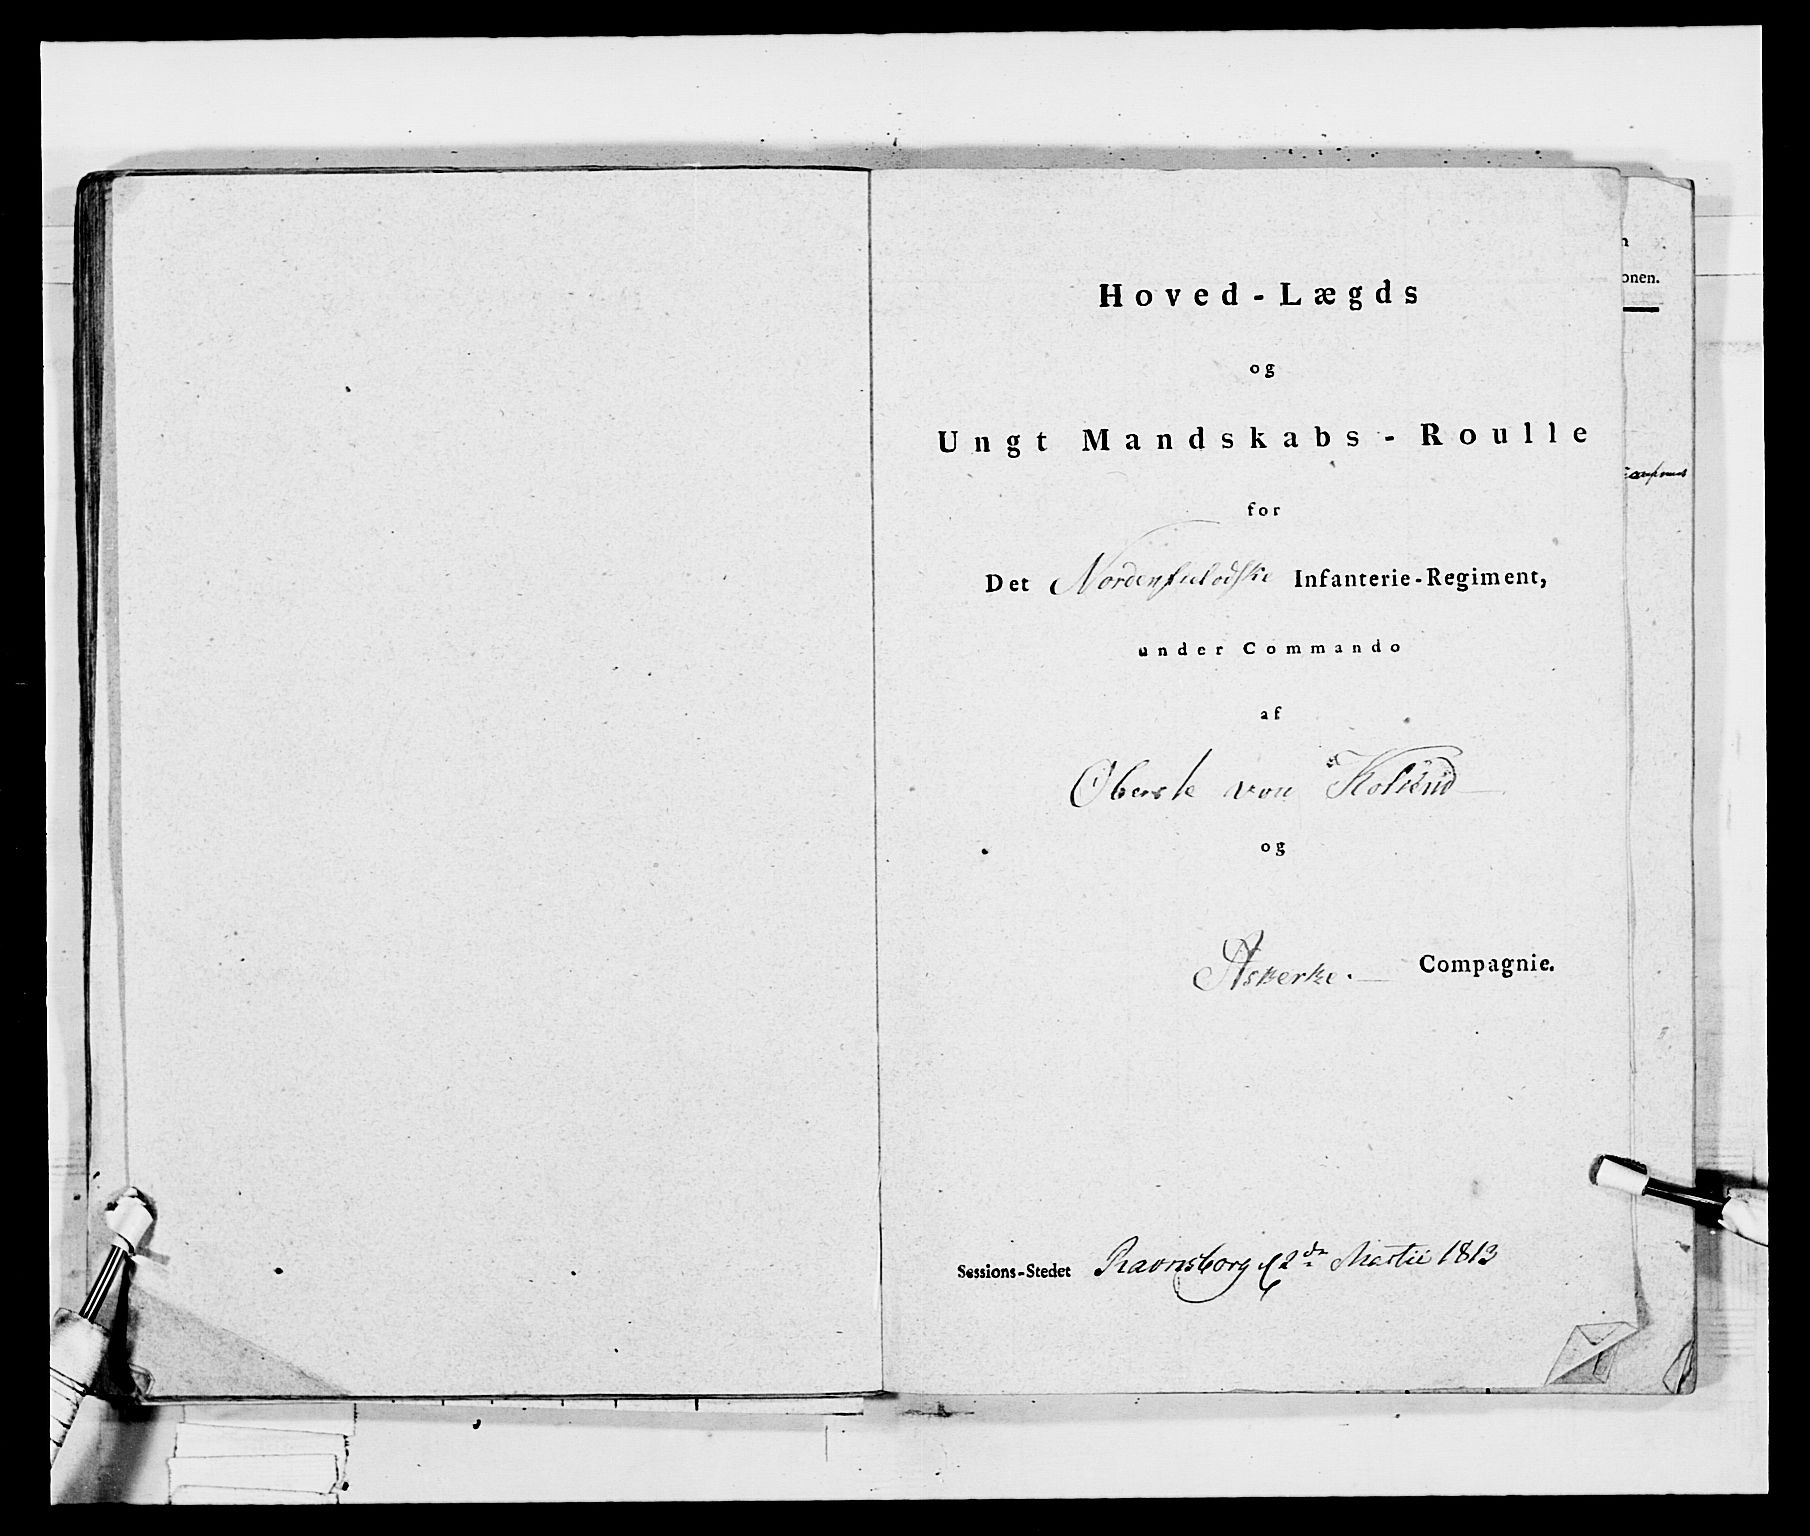 Hoved-Lægds
og
Ungt Mandskabs-Roulle
for
Det Nordenfieldske Infanterie-Regiment,
under Commando
af
Oberste von
og
Askerske Compagnie.
Sessions-Stedet Ravnsborg d 2den Martii 1813
onen.